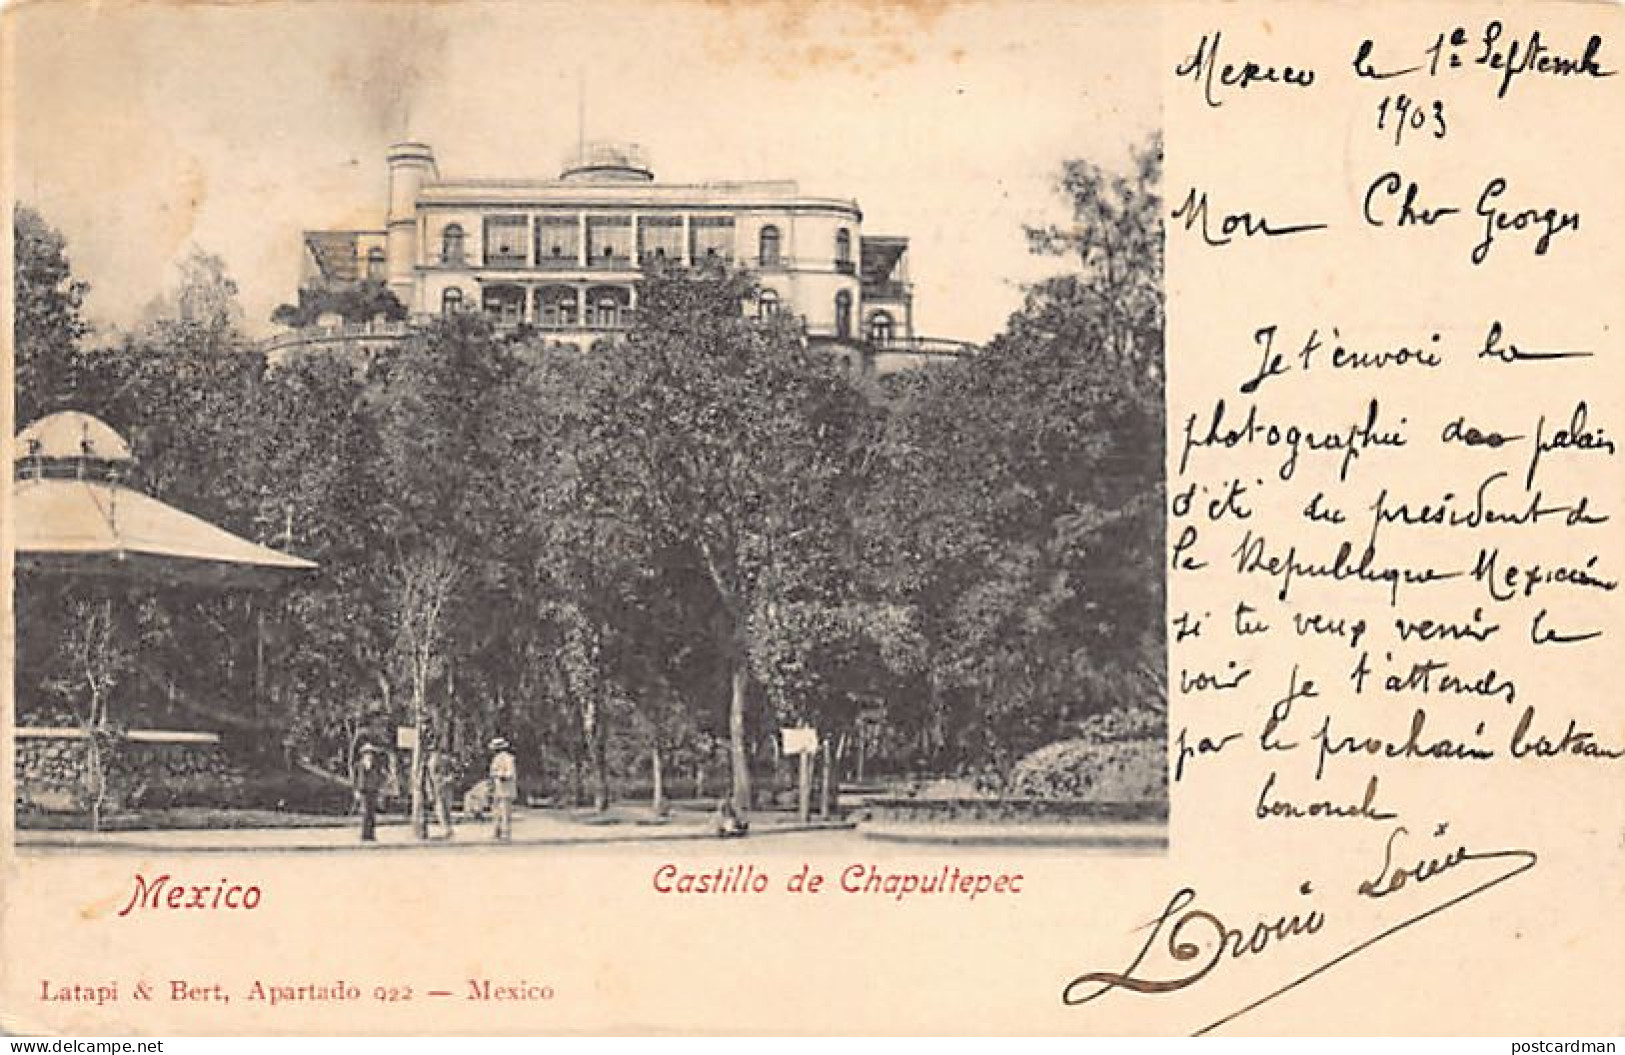 Mexico le 1e Septembre
1903
Mon Cher Georges
Je t'envoie la
photographie du palais
d'été du président de
la Republique Mexicaine
si tu veux venir le
voir je t'attends
par le prochain bateau
Louis
Mexico
Castillo de Chapultepec
Latapi & Bert, Apartado 922 — Mexico
delcampe.net
postcardman